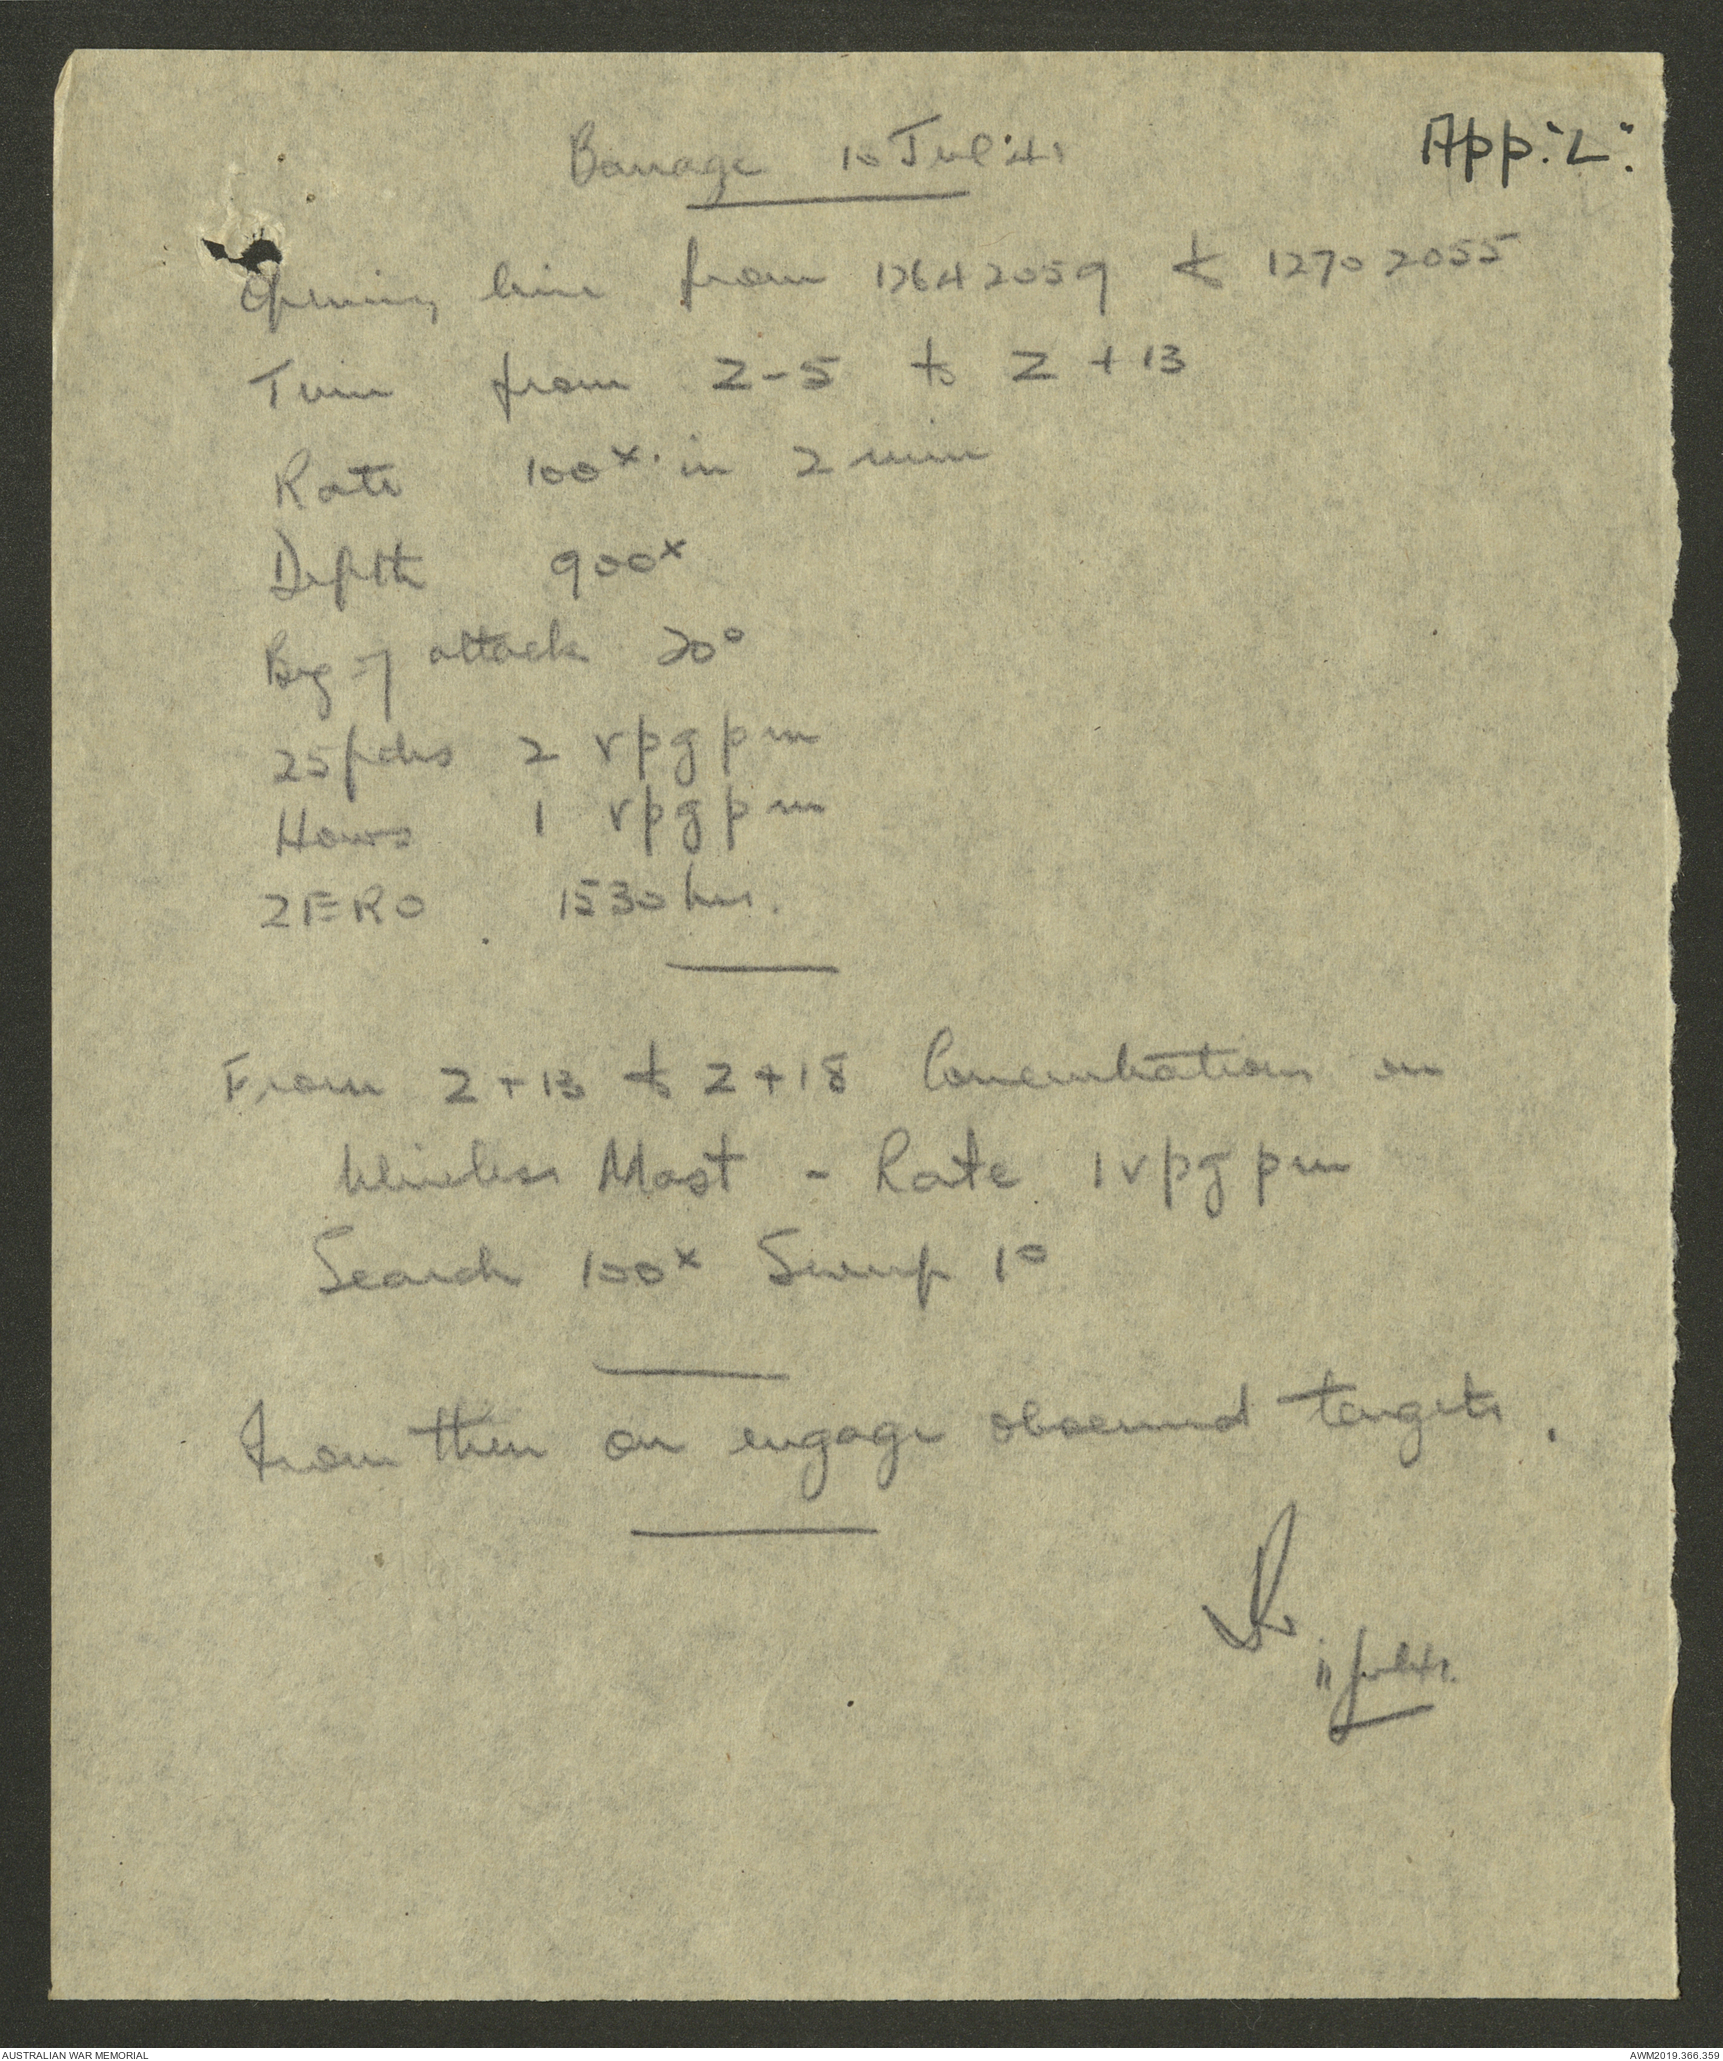 App: "L":
Barrage 10 Jul '41
Opening line from 12642059 to 12702055
Time from Z-5 to Z + 13
Rate 100x in 2 min
Depth 900x
Brg of attack 20°
25 pdrs 2 rpgpm
Hows 1 rpgpm
ZERO 1530 hrs.
From Z + 13 to Z + 18 Concentration on
Wireless Mast - Rate 1 rpgpm
Search 100x Sweep 1°
From then on engage observed targets.
11 Jul 41.
AUSTRALIAN WAR MEMORIAL
AWM2019.366.359